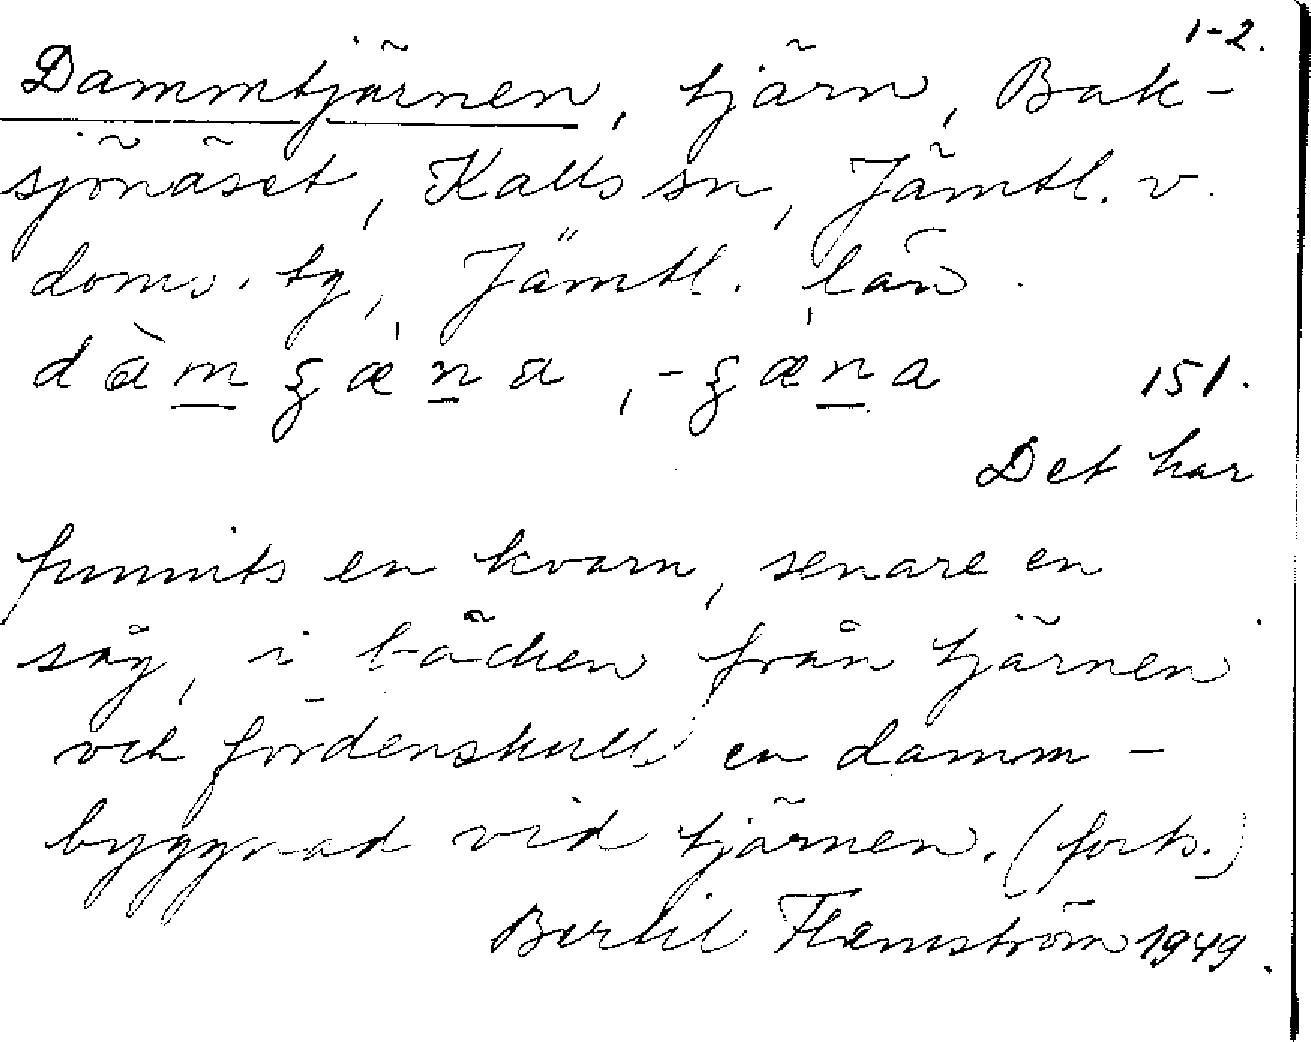 1-2.
Dammtjärnen, tjärn, Bak-
sjönäset, Kalls sn, Jämtl. v.
doms. tg, Jämtl. län.
151.
Det har
funnits en kvarn, senare en
såg, i bäcken från tjärnen
och fördenskull en damm-
byggnad vid tjärnen. (forts.)
Bertil Flemström 1949.